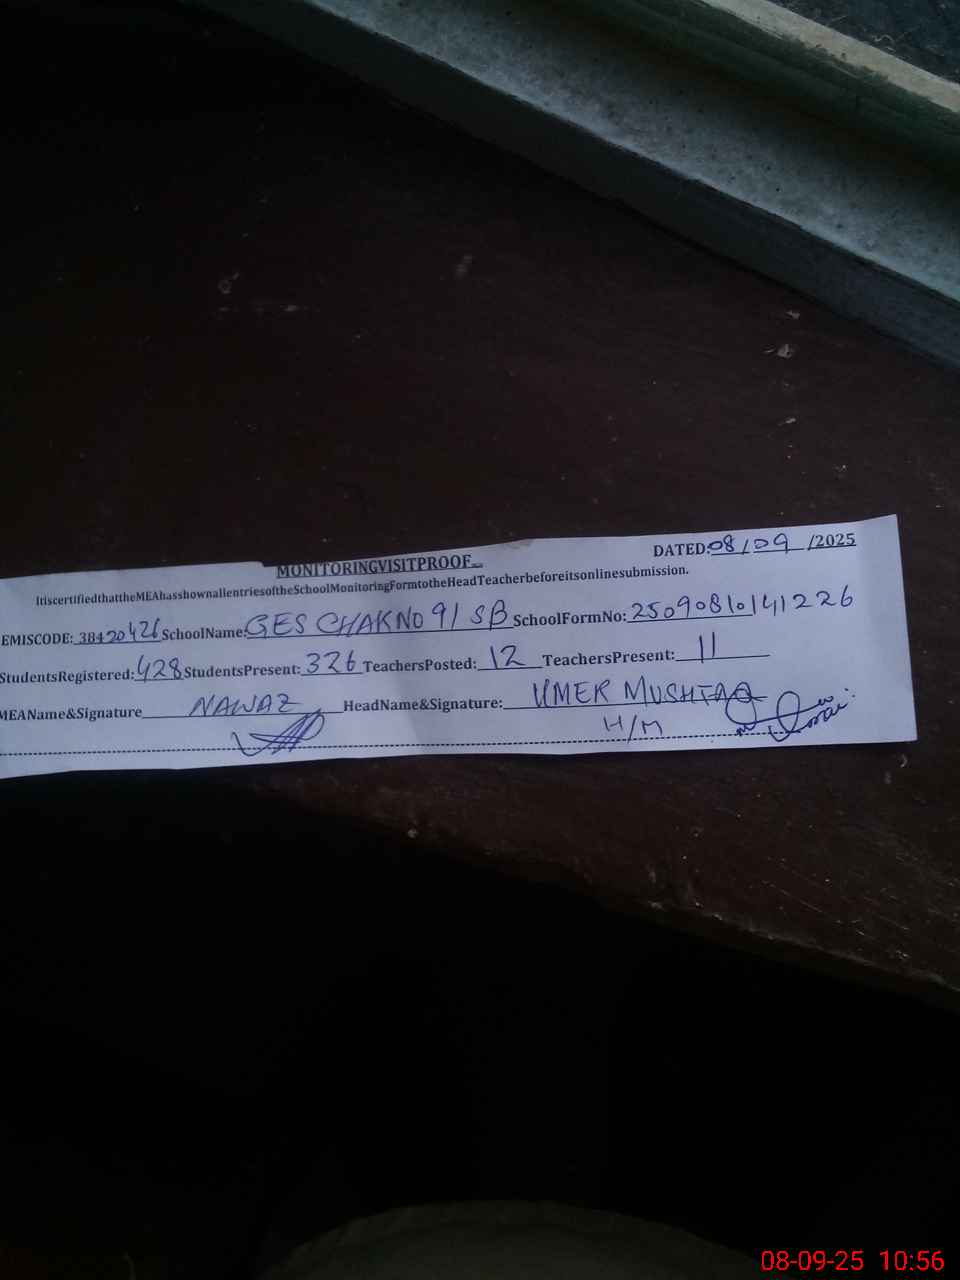 MONITORINGVISITPROOF
DATED:08/09/2025
ItiscertifiedthattheMEAhasshownallentriesoftheSchoolMonitoringFormtotheHeadTeacherbeforeitsonlinesubmission.
EMISCODE: 38420426 SchoolName: GES CHAK NO 91 SB SchoolFormNo: 25090810141226
StudentsRegistered: 428 StudentsPresent: 326 TeachersPosted: 12 TeachersPresent: 11
MEAName&Signature NAWAZ HeadName&Signature: UMER MUSHTAQ
H/M
08-09-25 10:56